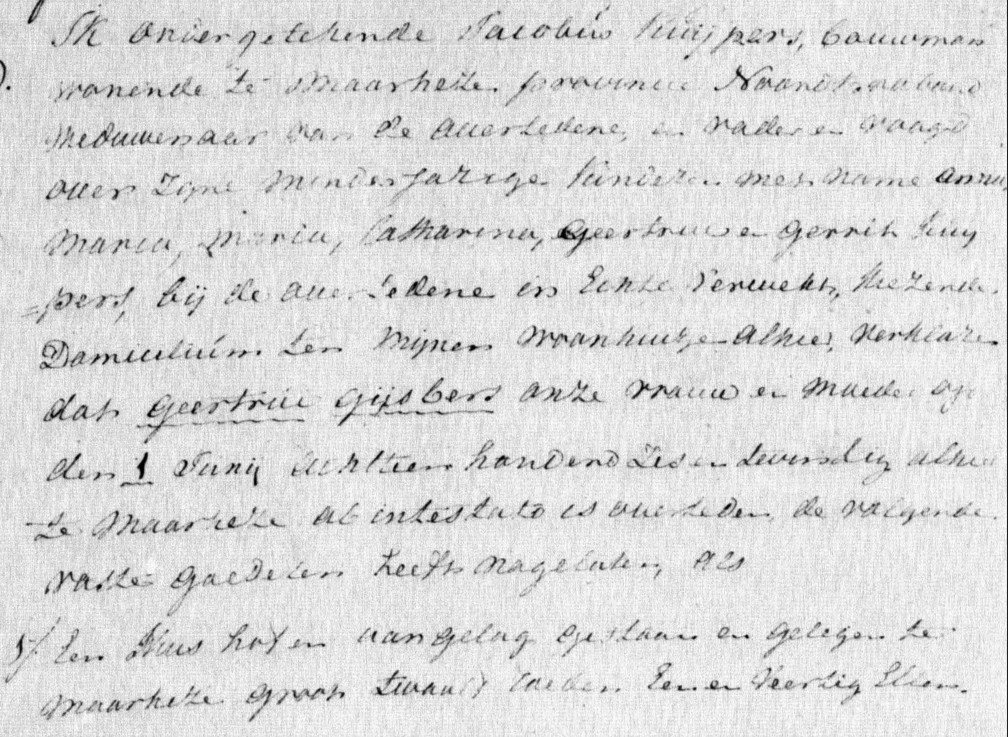 Ik ondergetekende Jacobus Kuijpers, bouwman
wonende te Maarheze provincie Noordbraband
Weduwenaar van de overledene, en vader en voogd
over zijne minderjarige kinderen met name Anna
Maria, Maria, Catharina, Geertrui en Gerrit Kuij
=pers, bij de overledene in Echte verwekt, kiezende
Domicilium ten mijnen woonhuize alhier, verklare
dat Geertrui Gijsbers onze vrouw en moeder op
den 1 Junij achttien honderd zes en twendig alhier
te Maarheze ab intestato is overleden, de volgende
vaste goederen heeft nagelaten, als
1/ Een Huis hof en aangelag gestaan en gelegen te
Maarheze groot twaalf roeden Een en Veertig Ellen.